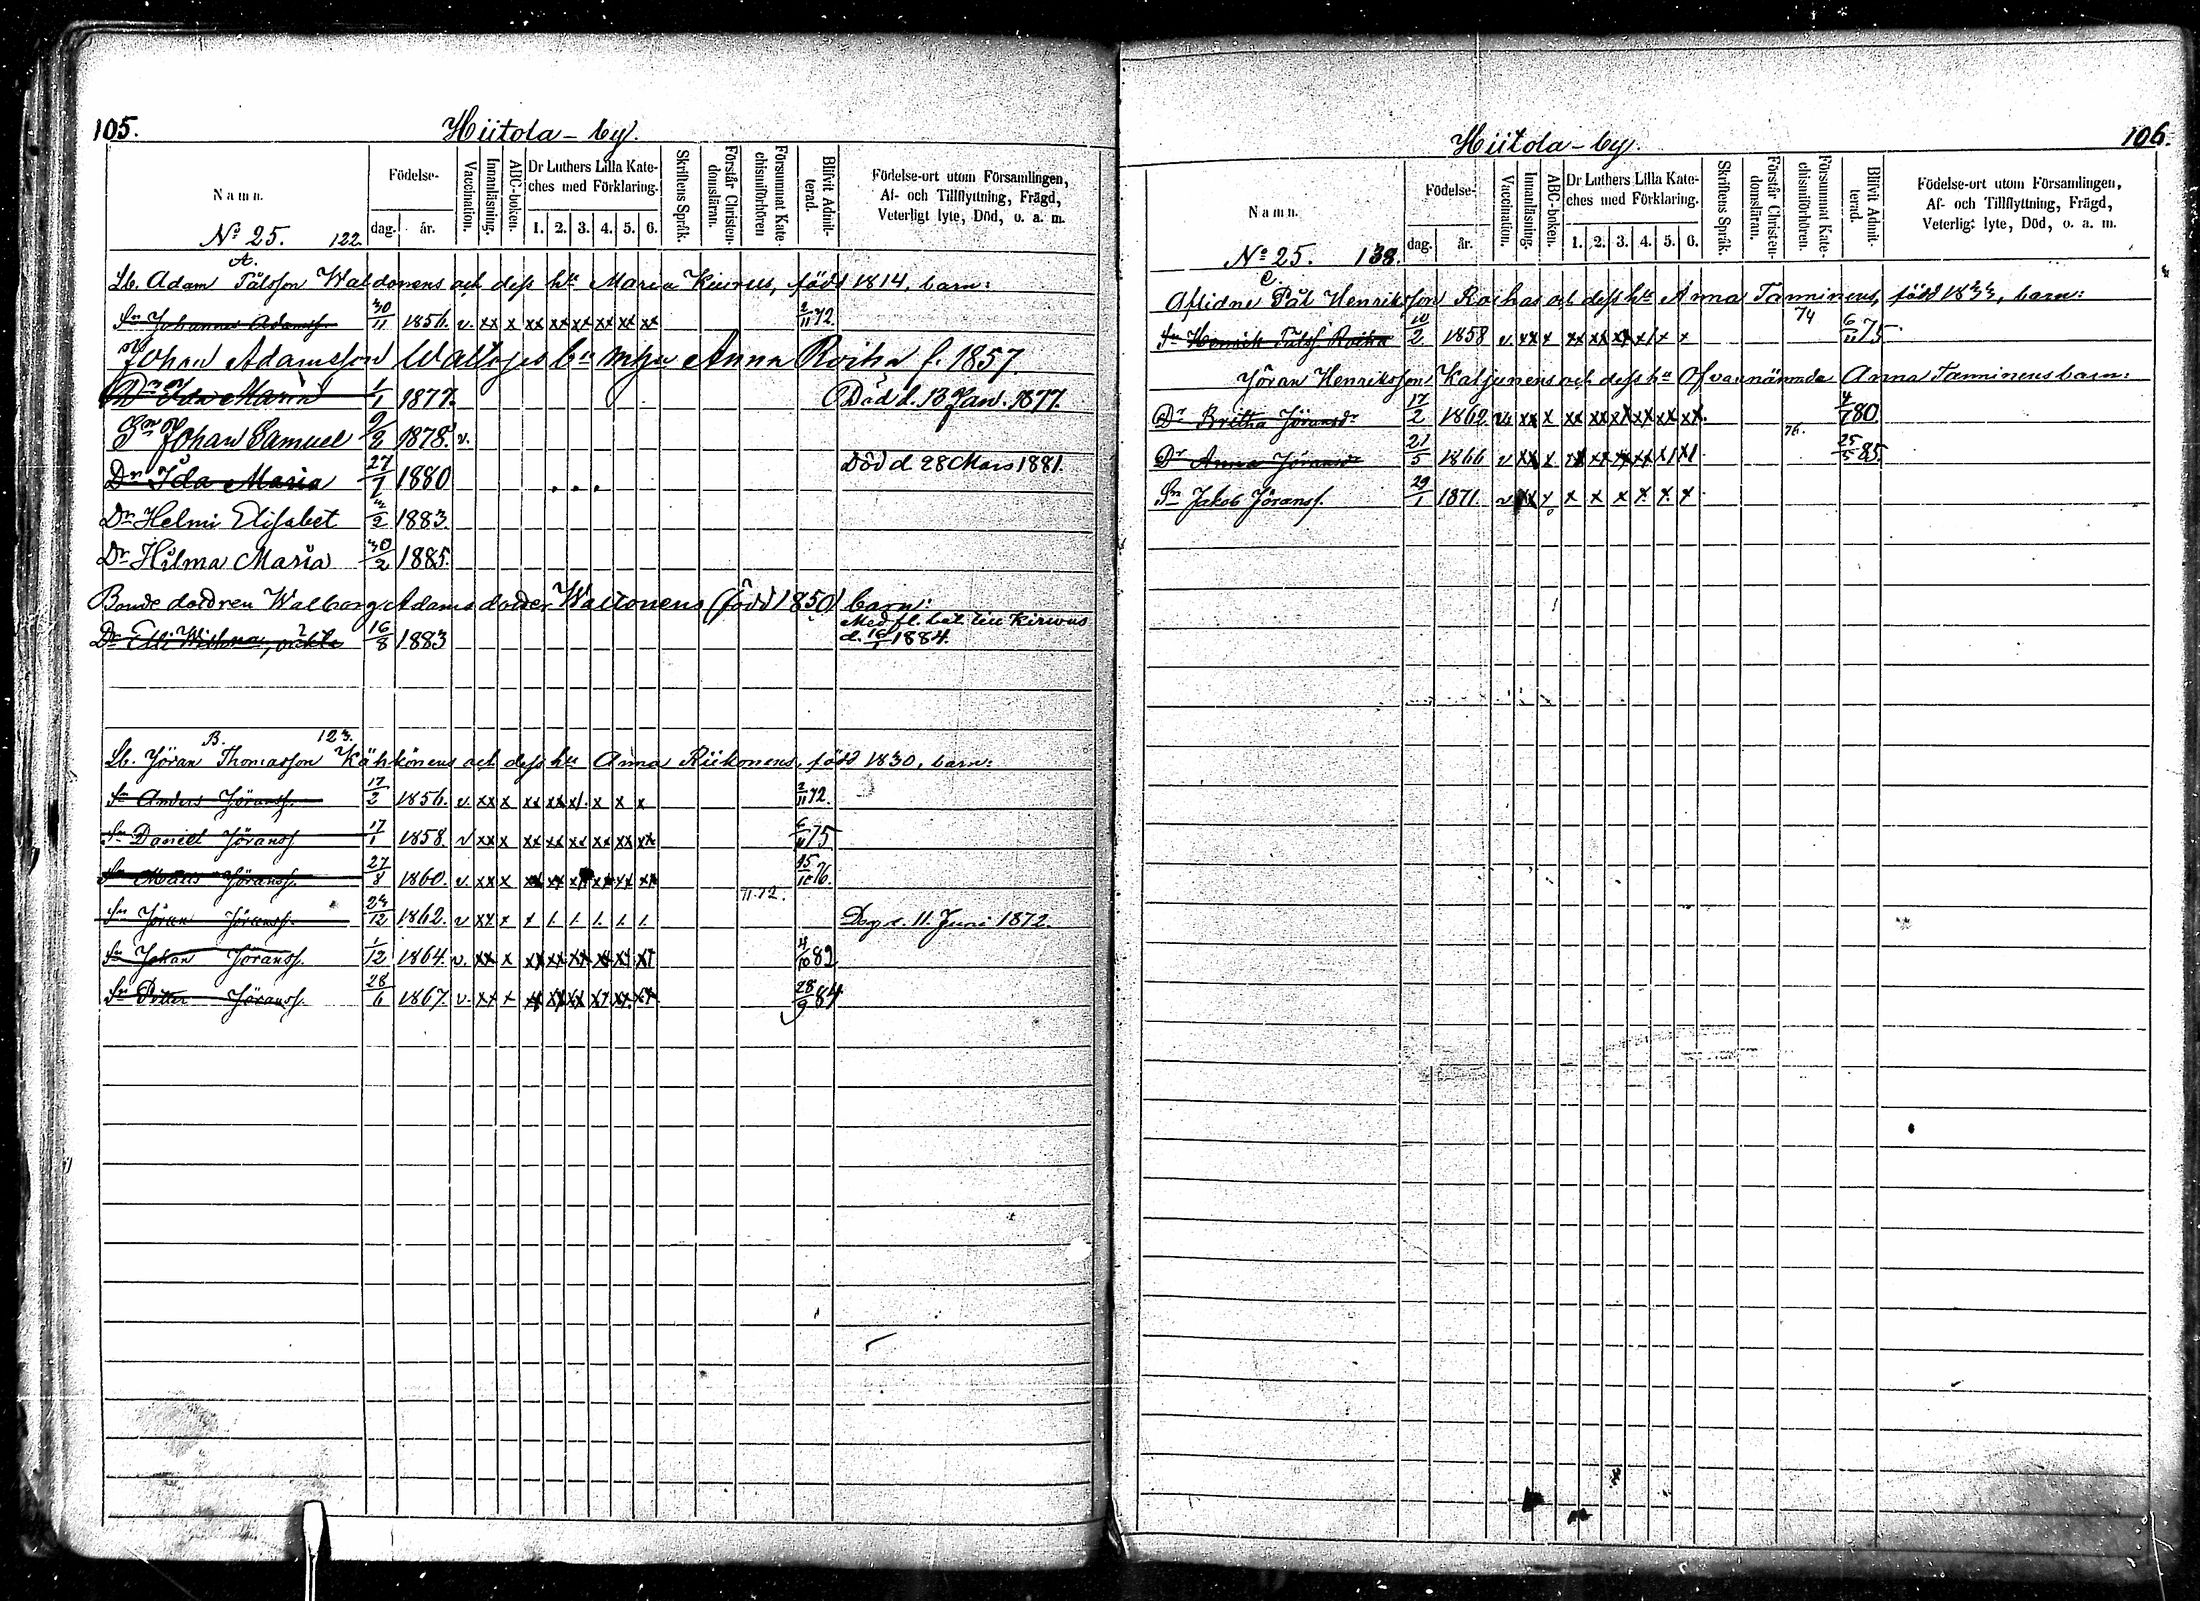 105.
Hiitola - by.
Namn.
Födelse-
dag.
år.
Vaccination.
Innanläsning.
ABC-boken.
Dr Luthers Lilla Kate-
ches med Förklaring.
1. 2. 3. 4. 5. 6.
Skriftens Språk.
Förstår Christen-
domsläran.
Försummat Kate-
chismiförhören
Blifvit Admit-
terad.
Födelse-ort utom Församlingen,
Af- och Tillflyttning, Frägd,
Veterligt lyte, Död, o. a. m.
No 25. 122.
A.
Lb. Adam Pålsson Waltonens och dess hu Maria Kiurus, född 1814, barn:
Sn Johannes Adamss. 30/11 1856. v. xx x xx xx xx xx xx xx 2/11 72.
Johan Adamsson Waltoges bn m hu Anna Roiha f. 1857.
Dr Ida Maria 1/1 1877. Död d. 13 Jan. 1877.
Sn Johan Samuel 9/2 1878. v.
Dr Ida Maria 27/1 1880 Död d. 28 Mars 1881.
Dr Helmi Elisabet 1883.
Dr Hilma Maria 30/2 1885.
Bonde dottren Walborg Adams dotter Waltonens (född 1850) barn:
Dr Elli 16/8 1883 Med fl. bet. till Kirwus
d. 16/1 1884.
B. 123.
Lb. Jöran Thomasson Kähkönens och dess hu Anna Riikonens, född 1830, barn:
Sn Anders Jöranss. 17/2 1856. v. xx x xx xx x/. x x x 2/11 72.
Sn Daniel Jöranss. 17/1 1858. v xx x xx xx xx xx xx xx 6/11 75
Sn Matts Jöranss. 27/8 1860. v. xx x xx xx xx xx xx xx 15/10 76.
Sn Jöran Jöranss. 24/12 1862. v xx x x /. /. /. /. /. 71.72. Dog d. 11. Juni 1872.
Sn Johan Jöranss. 1/12 1864. v. xx x xx xx xx xx xx xx 4/10 82
Sn Petter Jöranss. 28/6 1867. v. xx x xx xx xx xx xx xx 28/9 84.
106.
Hiitola - by.
Namn.
Födelse-
dag.
år.
Vaccination.
Innanläsning.
ABC-boken.
Dr Luthers Lilla Kate-
ches med Förklaring.
1. 2. 3. 4. 5. 6.
Skriftens Språk.
Förstår Christen-
domsläran.
Försummat Kate-
chismiförhören.
Blifvit Admit-
terad.
Födelse-ort utom Församlingen,
Af- och Tillflyttning, Frägd,
Veterligt lyte, Död, o. a. m.
No 25. 138.
C.
Aflidne Pål Henriksson Roihas och dess hu Anna Tanninens, född 1833, barn:
Sn Henrik Pålss. Roiha 10/2 1858 v. xx x xx xx xx x/ x x 74 6/11 75
Jöran Henrikssons Kaljunens och dess hu Ofvannämnda Anna Tanninens barn:
Dr Britha Jöransdr 17/2 1862. v. xx x xx xx xx xx xx xx. 4/7 80.
Dr Anna Jöransdr 21/5 1866 v xx x xx xx xx xx x/ x/ 76. 25/5 85.
Sn Jakob Jöranss. 29/1 1871. v xx x x x x x x x